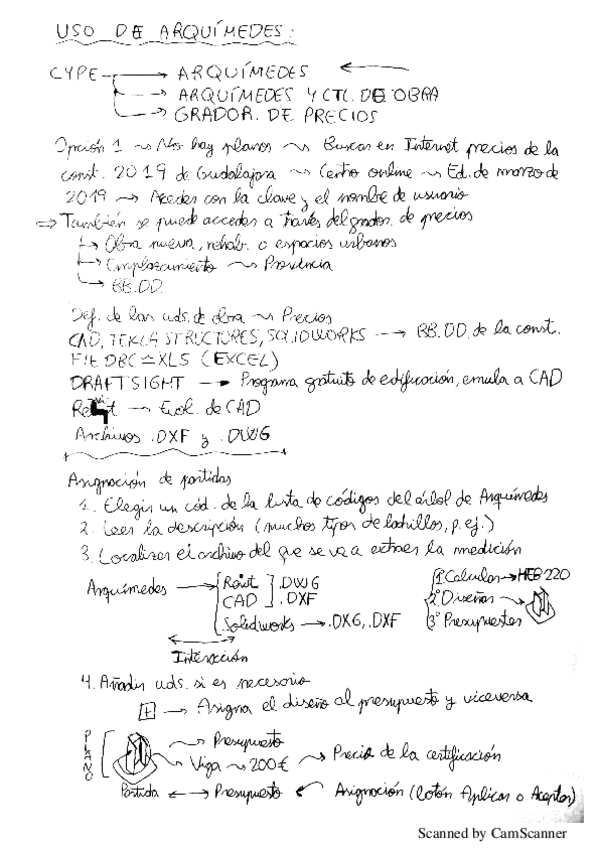 USO DE ARQUÍMEDES:
CYPE → ARQUÍMEDES ←
→ ARQUÍMEDES Y CTL. DE OBRA
→ GRADOR. DE PRECIOS
Opción 1 ~ No hay planos ~ Buscar en Internet precios de la
const. 2019 de Guadalajara ~ Centro online ~ Ed. de marzo de
2019 → Acceder con la clave y el nombre de usuario
⇒ También se puede acceder a través del grador. de precios
↳ Obra nueva, rehab. o espacios urbanos
↳ Emplazamiento ~ Provincia
↳ BB.DD.
Def. de las uds. de obra ~ Precios
CAD, TEKLA STRUCTURES, SOLIDWORKS → BB.DD. de la const.
FIEBDC ≃ XLS (EXCEL)
DRAFTSIGHT → Programa gratuito de edificación, emula a CAD
Revit → Evol. de CAD
Archivos .DXF y .DWG
Asignación de partidas
1. Elegir un cód. de la lista de códigos del árbol de Arquímedes
2. Leer la descripción (muchos tipos de ladrillos, p. ej.)
3. Localizar el archivo del que se va a extraer la medición
Arquímedes → Revit .DWG
CAD .DXF
Solidworks → .DXG, .DXF
1º Calcular → HEB 220
2º Diseñar
3º Presupuestar
Interacción
4. Añadir uds. si es necesario
+ → Asigna el diseño al presupuesto y viceversa
PLANO
~ Presupuesto
~ Viga ~ 200€ ~ Precio de la certificación
Partida ↔ Presupuesto ← Asignación (botón Aplicar o Aceptar)
Scanned by CamScanner